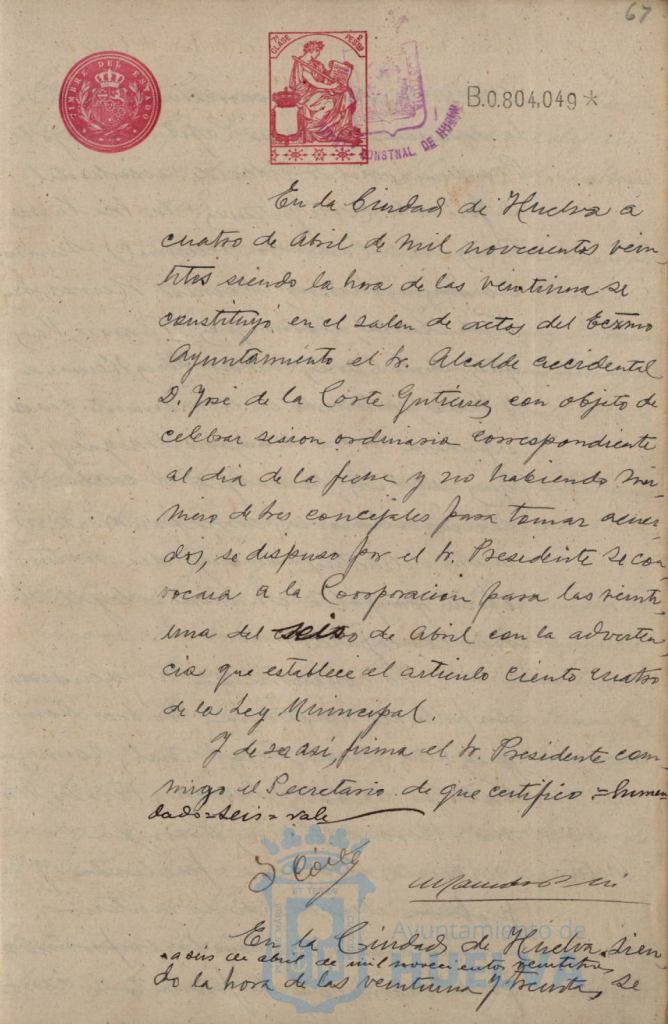 67
TIMBRE DEL ESTADO
7ª CLASE 2 PESETAS
CONSTNAL. DE HUELVA
B.0.804,049*
En la Ciudad de Huelva a
cuatro de Abril de mil novecientos vein
titres siendo la hora de las veintiuna se
constituyó en el salon de actos del Excmo
Ayuntamiento el Sr. Alcalde accidental
D. José de la Corte Gutierrez con objeto de
celebrar sesion ordinaria correspondiente
al dia de la fecha y no habiendo nú-
mero de tres concejales para tomar acuer
dos, se dispuso por el Sr. Presidente se con
vocara a la Corporacion para las veinti
una del seis de Abril con la adverten
cia que establece el articulo ciento cuatro
de la Ley Municipal.
Y de ser asi, firma el Sr. Presidente con
migo el Secretario de que certifico =Enmen
dado=seis=vale
J Corte
Ayuntamiento de
HUELVA
En la Ciudad de Huelva, sien
a seis de abril de mil novecientos veintitres
do la hora de las veintiuna y treinta, se